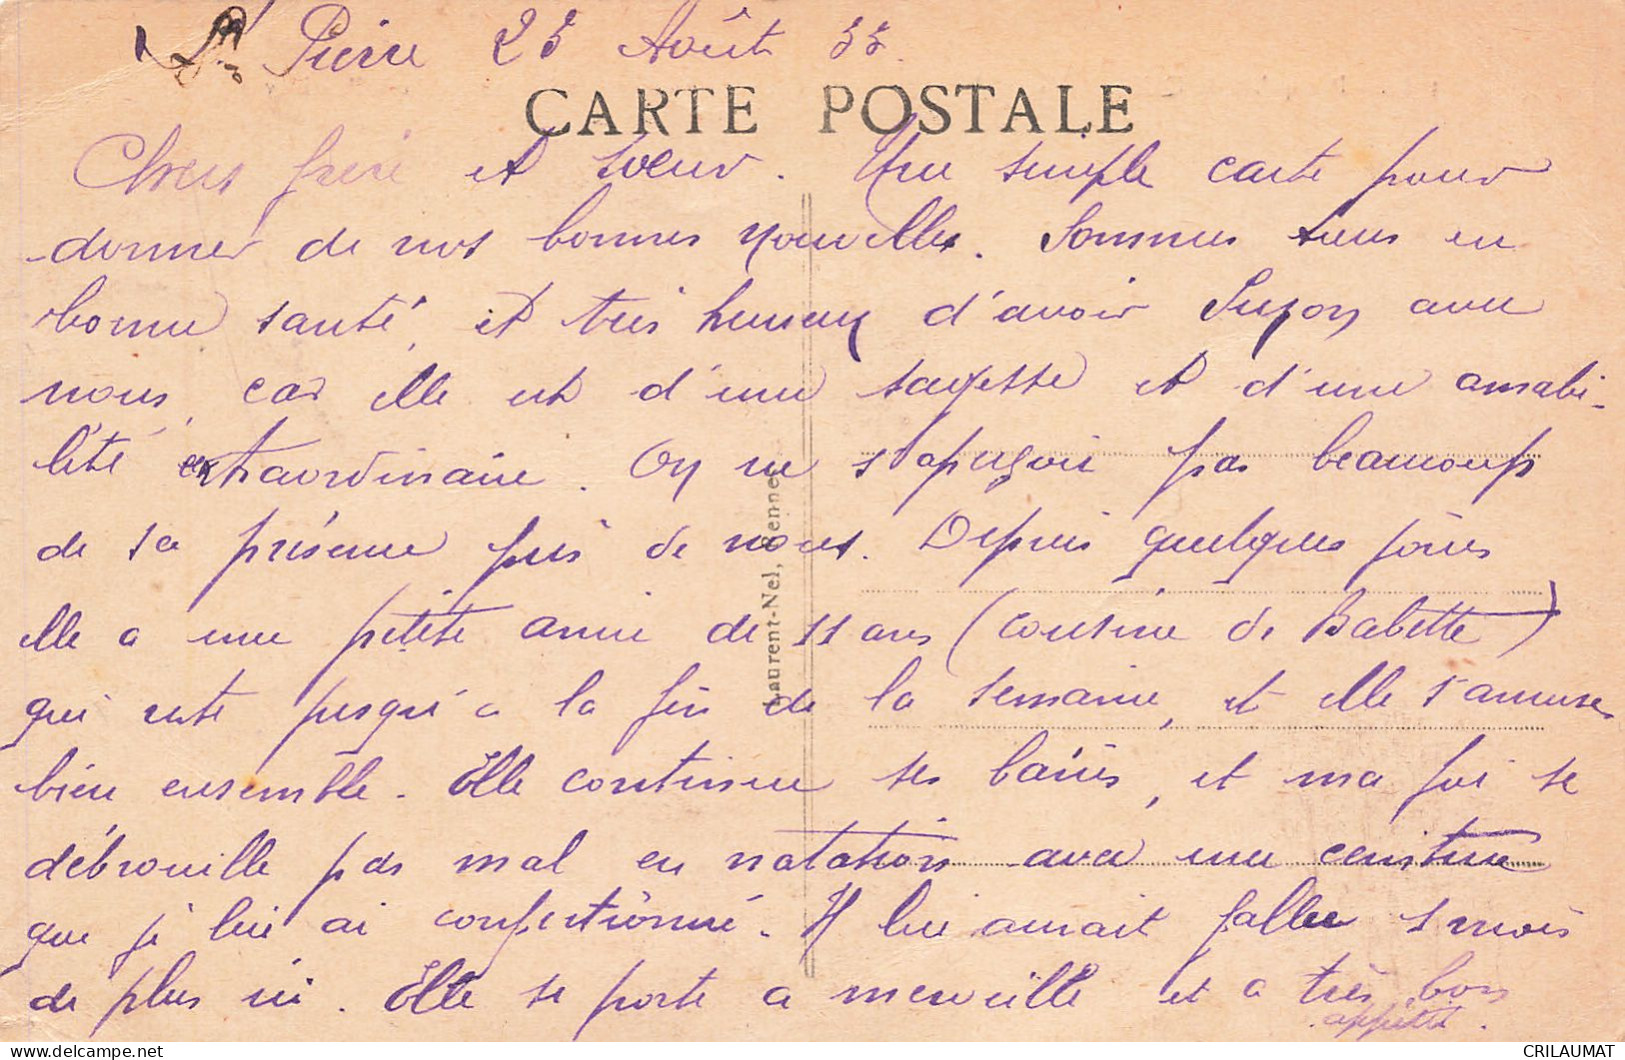 St Pierre 25 Août 33.
CARTE POSTALE
Chers frère et soeur. Une simple carte pour
donner de nos bonnes nouvelles. Sommes tous en
bonne santé, et très heureux d'avoir Suzon avec
nous, car elle est d'une sagesse et d'une amabi-
lité extraordinaire. On ne s'aperçoit pas beaucoup
de sa présence près de nous. Depuis quelques jours
elle a une petite amie de 11 ans (cousine de Babette)
qui reste jusqu'à la fin de la semaine, et elle s'amuse
bien ensemble. Elle continue ses bains, et ma foi se
débrouille pas mal en natation avec une ceinture
que je lui ai confectionné. Il lui aurait fallu 1 mois
de plus ici. Elle se porte a merveille et a très bon
appétit.
Laurent-Nel, Rennes
CRILAUMAT